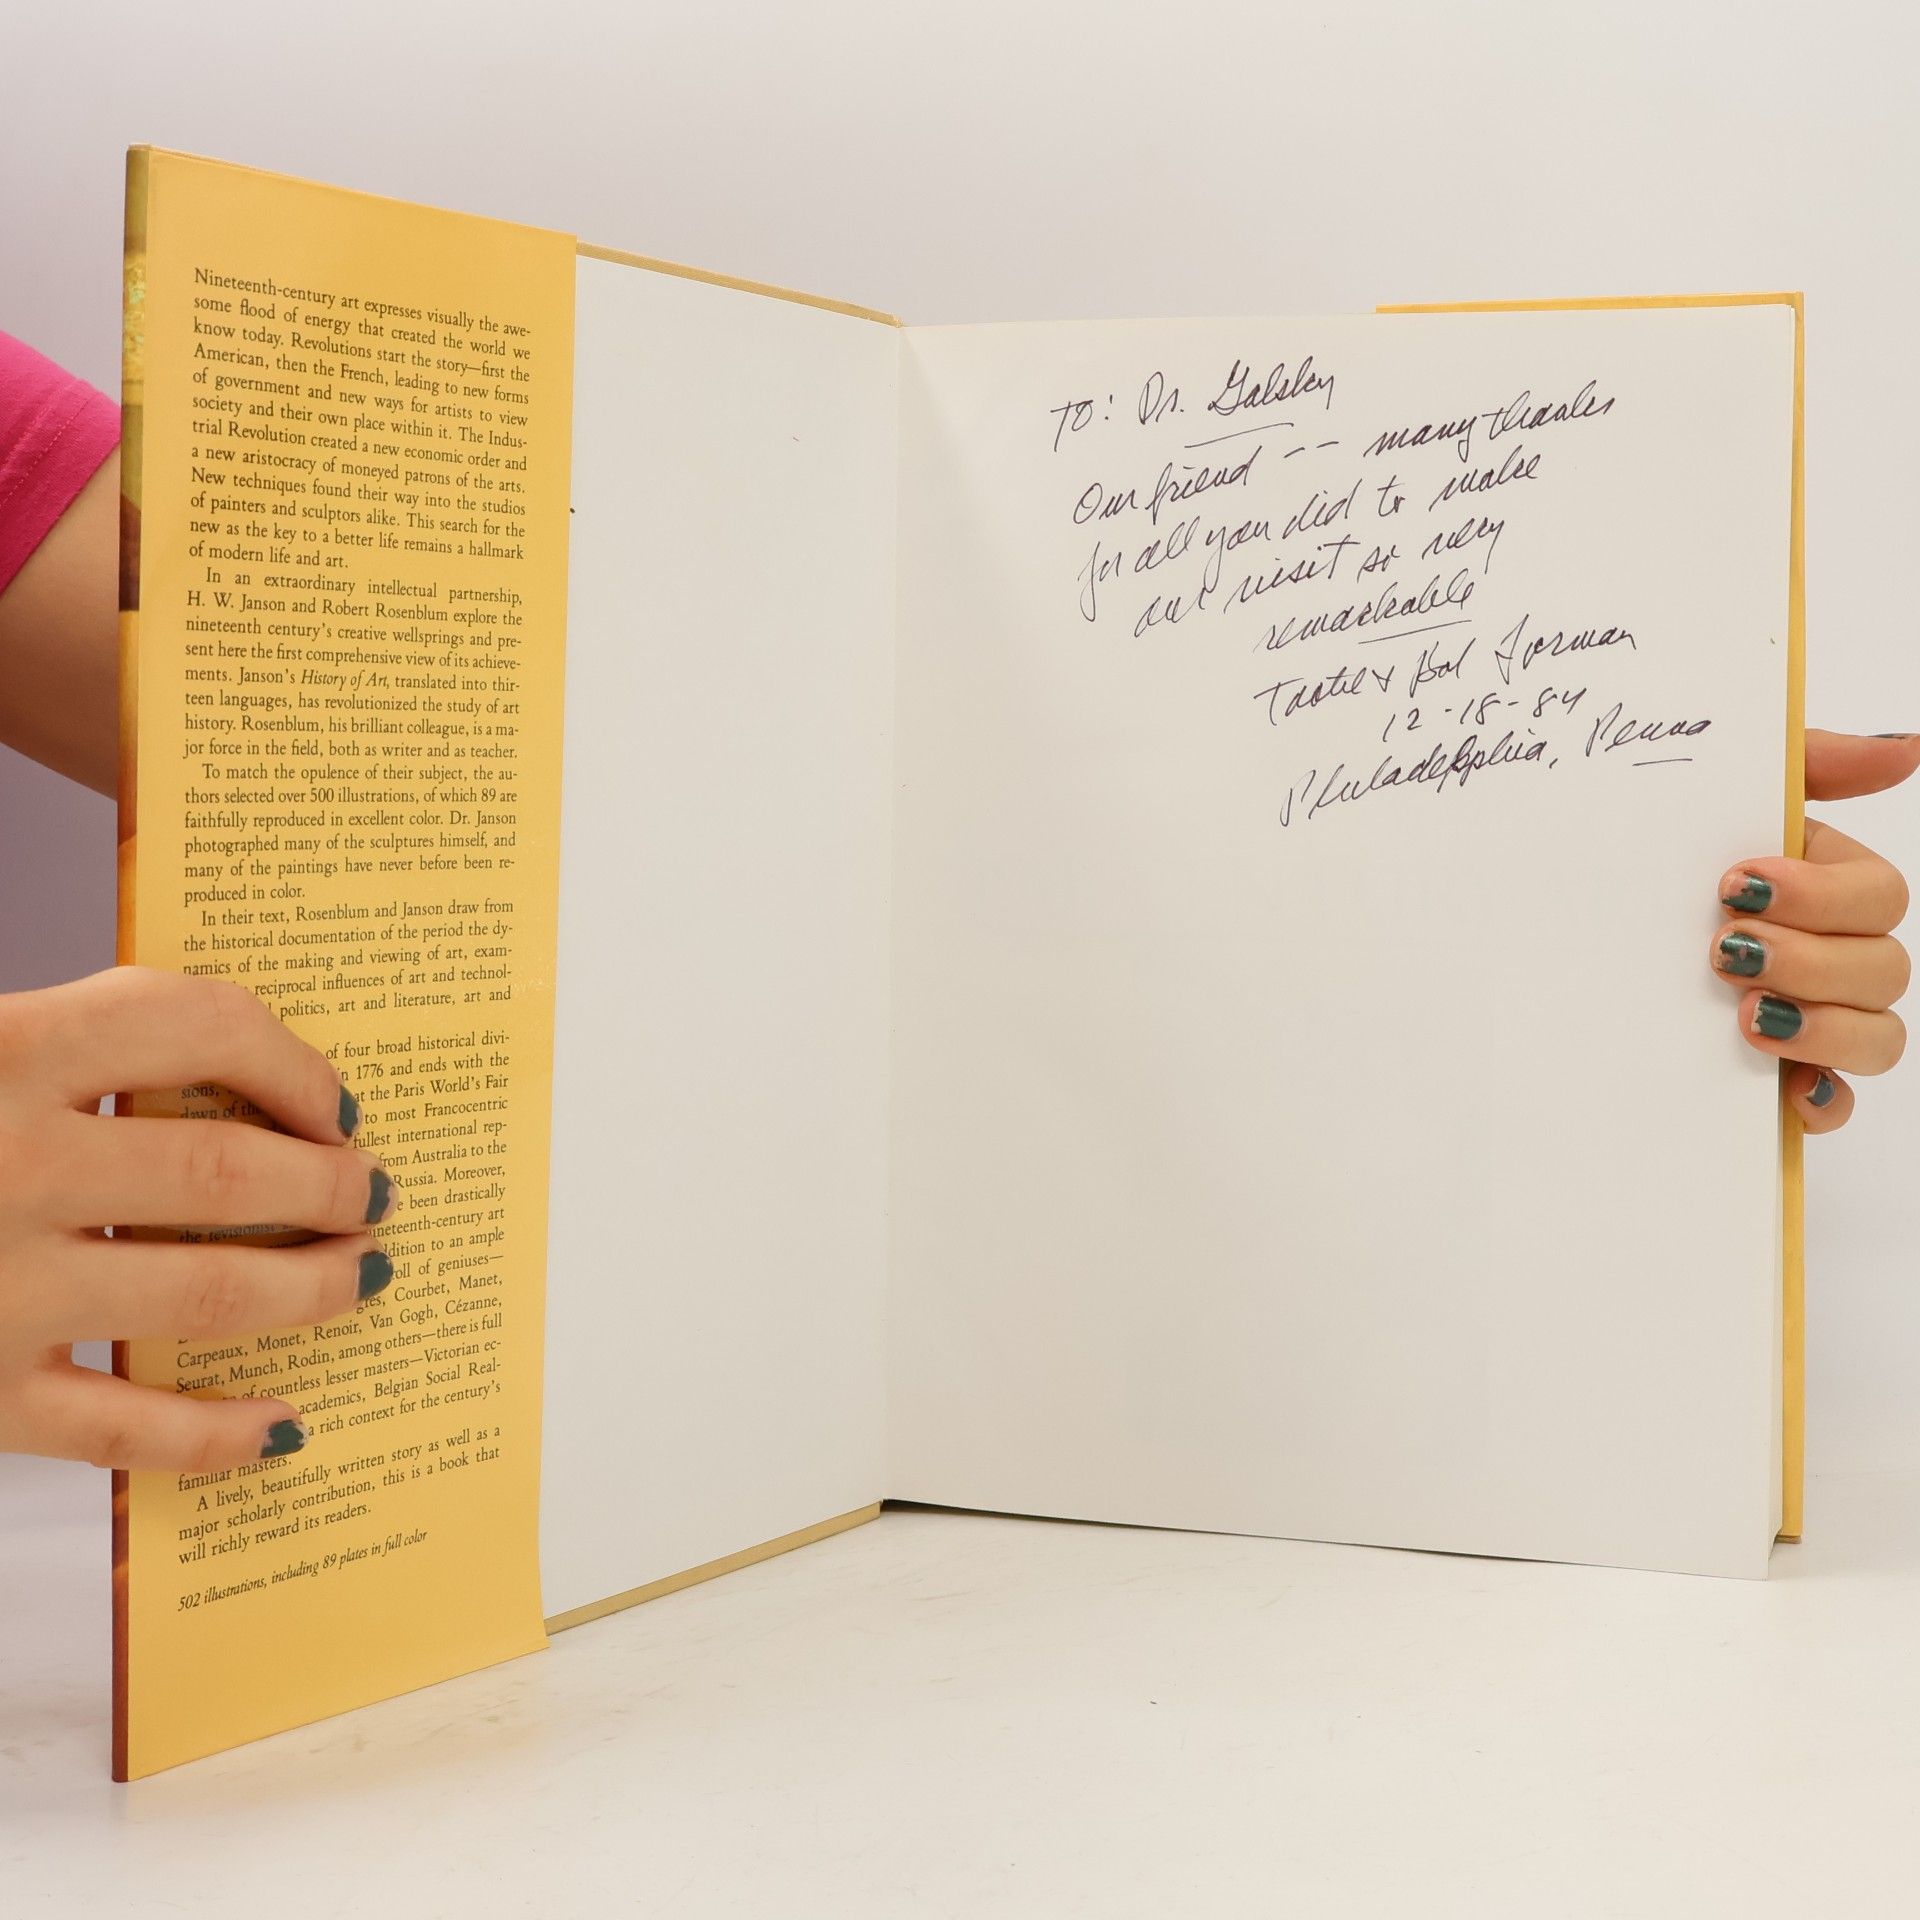 Nineteenth-century art expresses visually the awe-
some flood of energy that created the world we
know today. Revolutions start the story—first the
American, then the French, leading to new forms
of government and new ways for artists to view
society and their own place within it. The Indus-
trial Revolution created a new economic order and
a new aristocracy of moneyed patrons of the arts.
New techniques found their way into the studios
of painters and sculptors alike. This search for the
new as the key to a better life remains a hallmark
of modern life and art.
In an extraordinary intellectual partnership,
H. W. Janson and Robert Rosenblum explore the
nineteenth century's creative wellsprings and pre-
sent here the first comprehensive view of its achieve-
ments. Janson's History of Art, translated into thir-
teen languages, has revolutionized the study of art
history. Rosenblum, his brilliant colleague, is a ma-
jor force in the field, both as writer and as teacher.
To match the opulence of their subject, the au-
thors selected over 500 illustrations, of which 89 are
faithfully reproduced in excellent color. Dr. Janson
photographed many of the sculptures himself, and
many of the paintings have never before been re-
produced in color.
In their text, Rosenblum and Janson draw from
the historical documentation of the period the dy-
namics of the making and viewing of art, exam-
reciprocal influences of art and technol-
politics, art and literature, art and
of four broad historical divi-
sions, 1776 and ends with the
dawn of at the Paris World's Fair
to most Francocentric
fullest international rep-
from Australia to the
Russia. Moreover,
been drastically
the revisionist nineteenth-century art
to an ample
roll of geniuses—
Courbet, Manet,
Carpeaux, Monet, Renoir, Van Gogh, Cézanne,
Seurat, Munch, Rodin, among others—there is full
of countless lesser masters—Victorian ec-
academics, Belgian Social Real-
a rich context for the century's
familiar masters.
A lively, beautifully written story as well as a
major scholarly contribution, this is a book that
will richly reward its readers.
502 illustrations, including 89 plates in full color
TO: Dr. Galsky
Our friend -- many thanks
for all you did to make
our visit so very
remarkable
& Bob Forman
12-18-84
Philadelphia, Penna